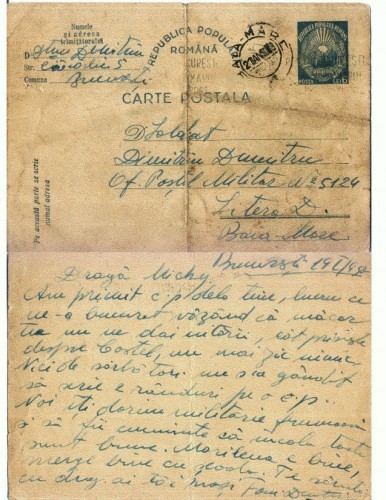 Numele
și adresa
trimițătorului
D
Str.
Comuna București
REPUBLICA POPULARĂ
ROMÂNĂ
BAIA-MARE
POSTA
CARTE POSTALA
DSoldat
Dimitriu Dumitru
Of. Poștal Militar No 5124
Litera D.
Baia-Mare
Pe această parte se scrie
numai adresa
București 19 I/952
Dragă Micky
Am primit c.p. dela tine, lucru ce
ne-a bucurat văzând că măcar
tu nu ne dai uitării, cât privește
despre Costel, nu mai zic nimic.
Nici de sărbători nu s-a gândit
să scrie 2 rânduri pe o c.p.
Noi îți dorim militărie frumoasă
și să fii cuminte să
Marilena e bine,
merge bine cu școala. Te sărută
cu drag ai tăi moși, Fam.